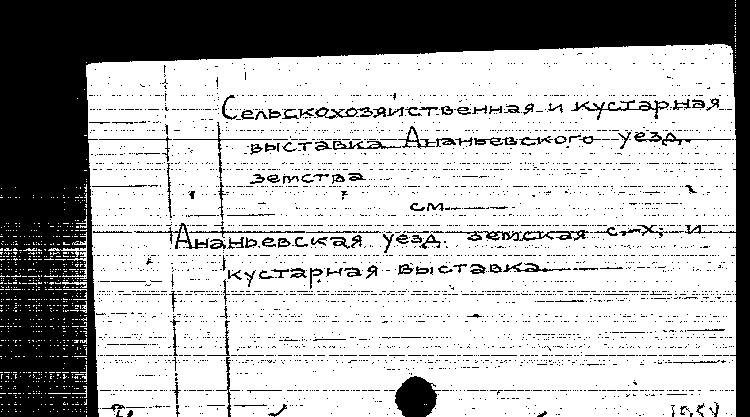 Сельскохозяйственная и кустарная
выставка Ананьевского уезд.
земства
см
Ананьевская уезд. земская с.-х. и
кустарная выставка.